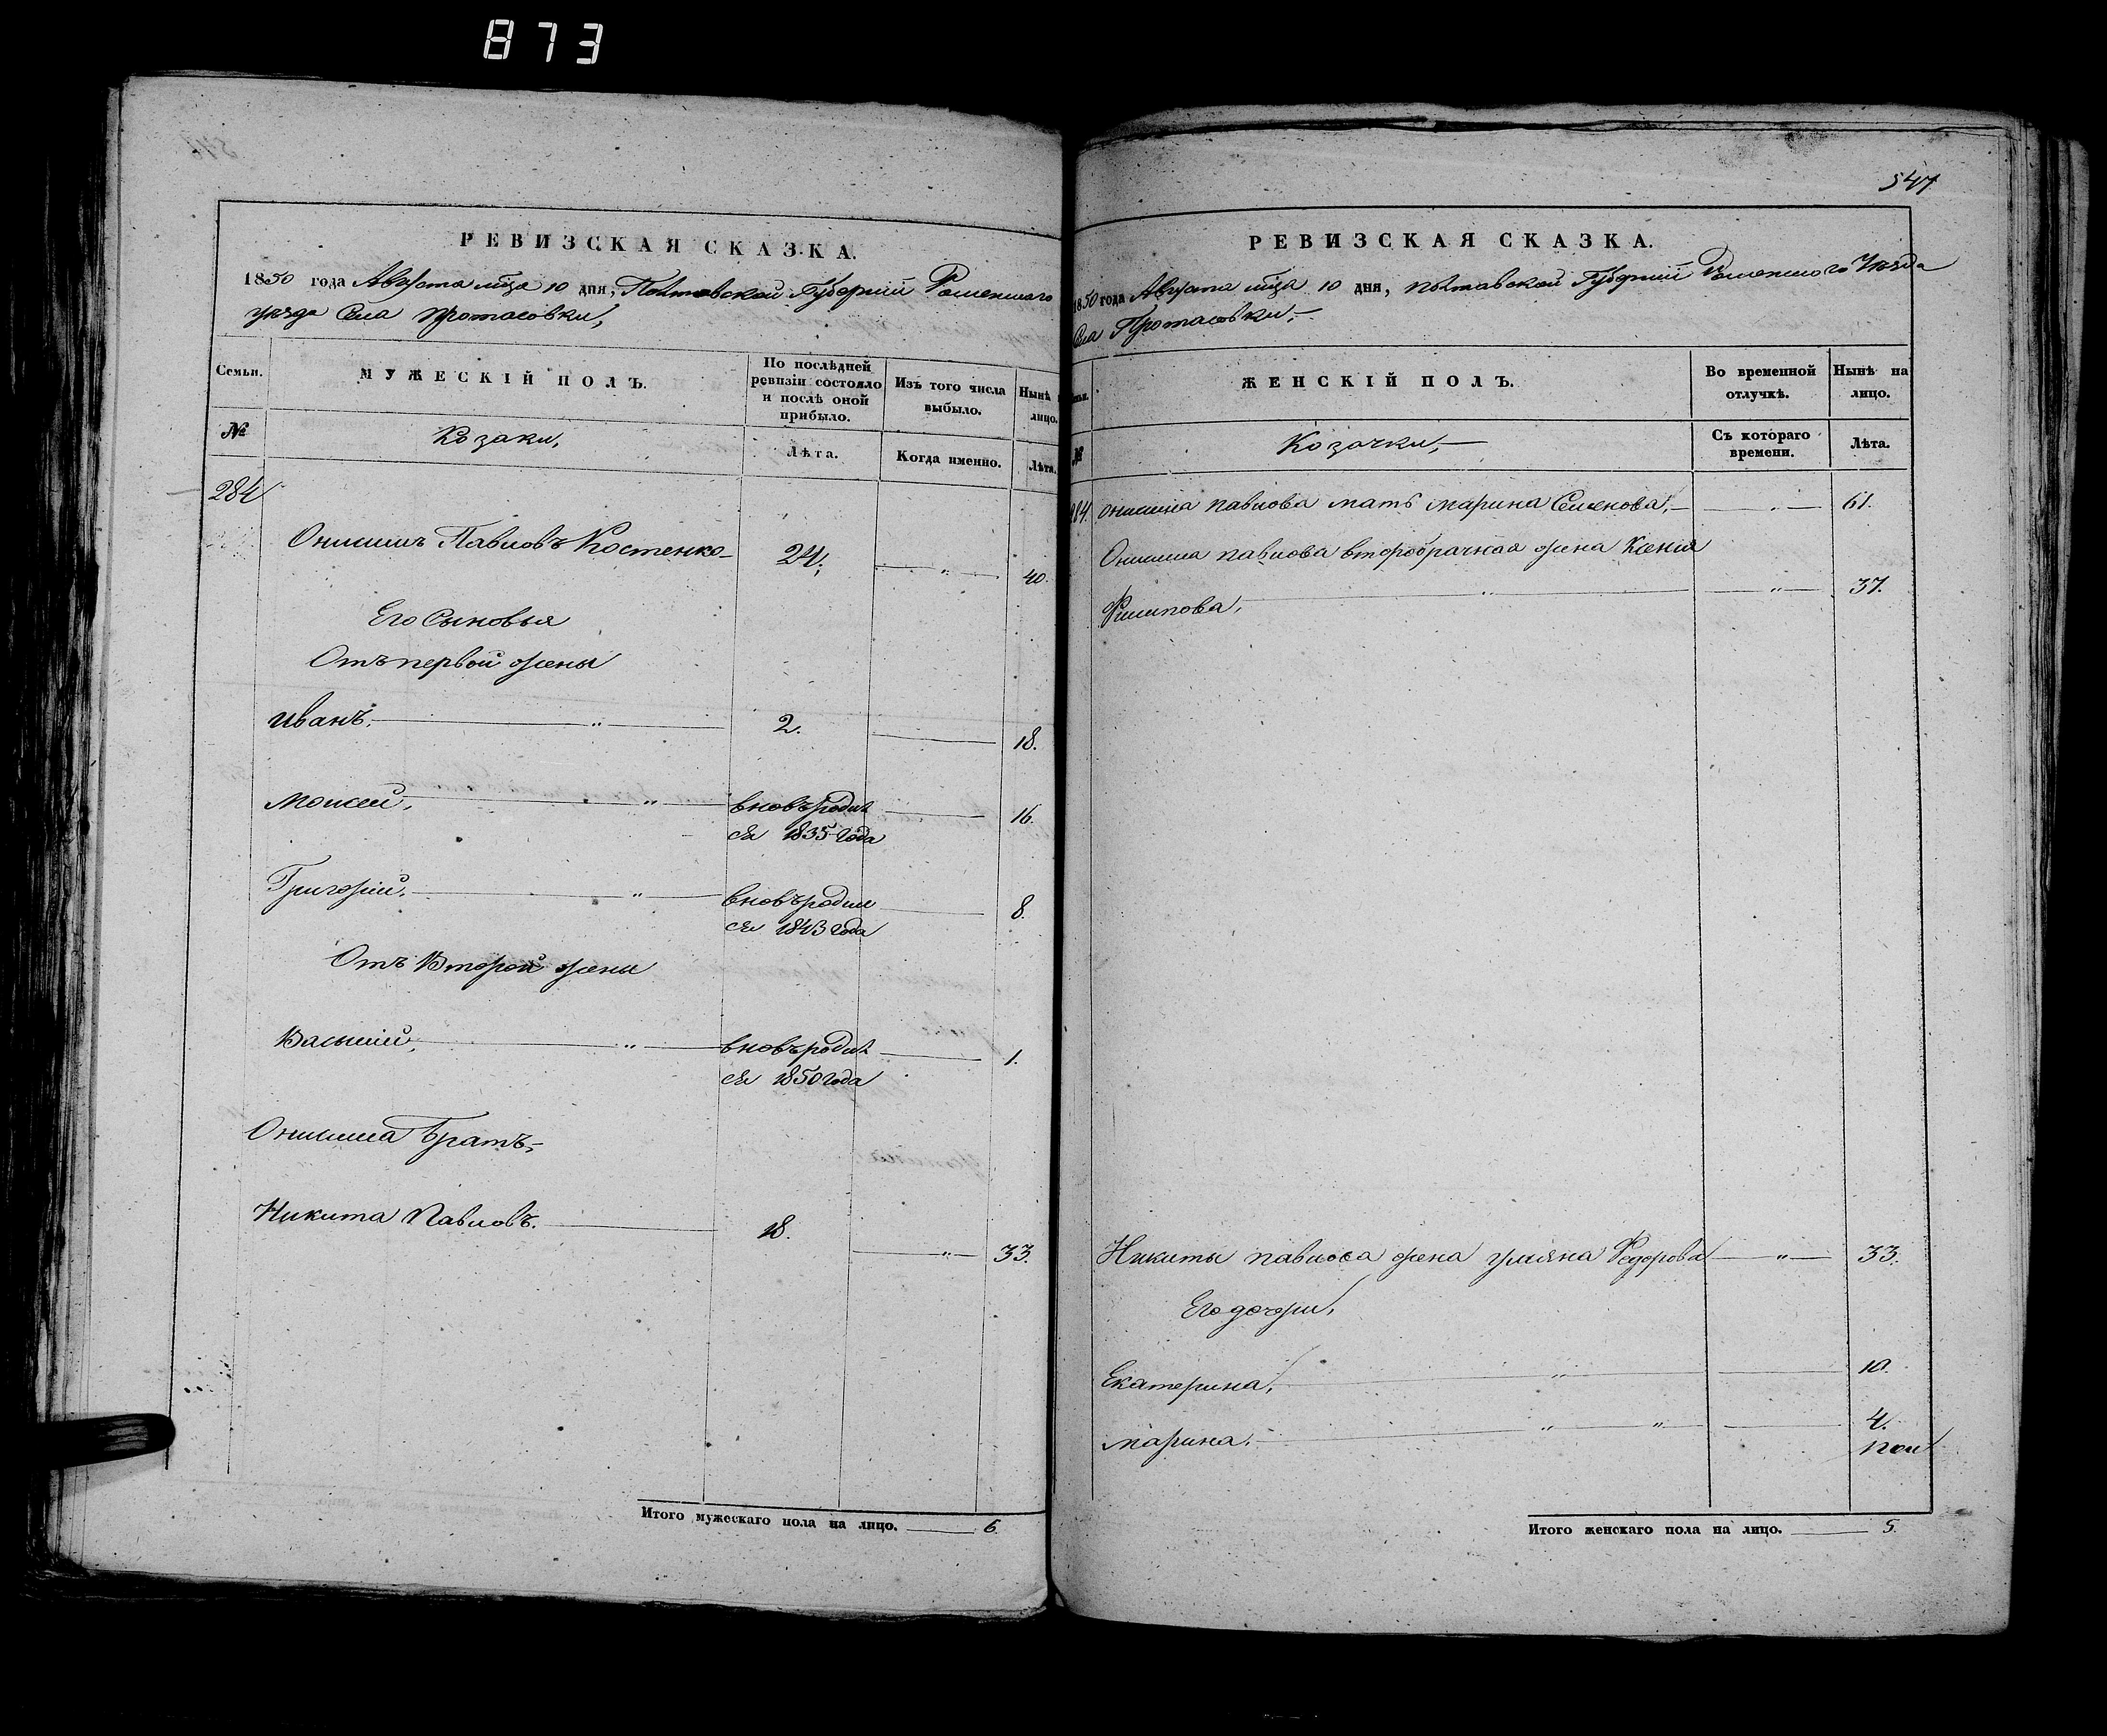 873
РЕВИЗСКАЯ СКАЗКА.
1850 года Августа мца 10 дня, Полтавской Губерніи Роменскаго
уезда Села Протасовки,
Семьи.
МУЖЕСКІЙ ПОЛЪ.
По послѣдней ревизіи состояло и послѣ оной прибыло.
Изъ того числа выбыло.
Нынѣ лицо.
№
Козаки,
Лѣта.
Когда именно.
Лѣта.
284
Онисимъ Павловъ Костенко
24.
40.
Его Сыновья
Отъ первой жены
Иванъ.
2.
18.
Моисей,
вновъ родил
ся 1835 года
16.
Григорій,
вновъ родил
ся 1843 года
8.
Отъ Второй жены
Василій,
вновъ родил
ся 1850 года
1.
Онисима Братъ,
Никита Павловъ.
18.
33.
Итого мужескаго пола на лицо. 6.
547
РЕВИЗСКАЯ СКАЗКА.
1850 года Августа мца 10 дня, Полтавской Губерніи Роменскаго Уезда
Села Протасовки,
ЖЕНСКІЙ ПОЛЪ.
Во временной отлучкѣ.
Нынѣ на лицо.
№
Козачки,
Съ котораго времени.
Лѣта.
284.
Онисима Павлова мать Марина Семенова,
61.
Онисима Павлова второбрачная жена Ксенія
Филипова,
37.
Никиты Павлова жена Улияна Федорова
33.
Его дочери,
Екатерина,
10.
Марина.
4.
пол
Итого женскаго пола на лицо. 5.